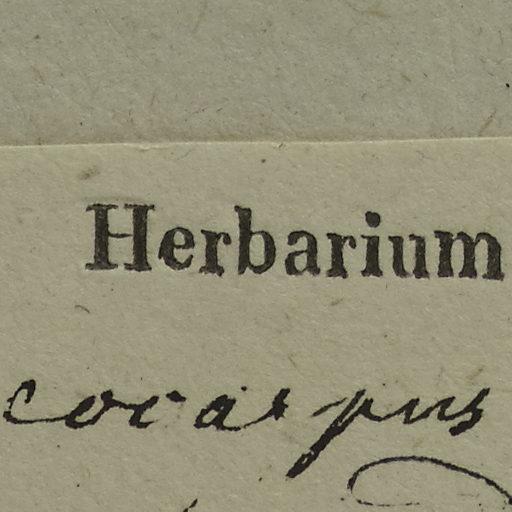 Herbarium
cocarpus